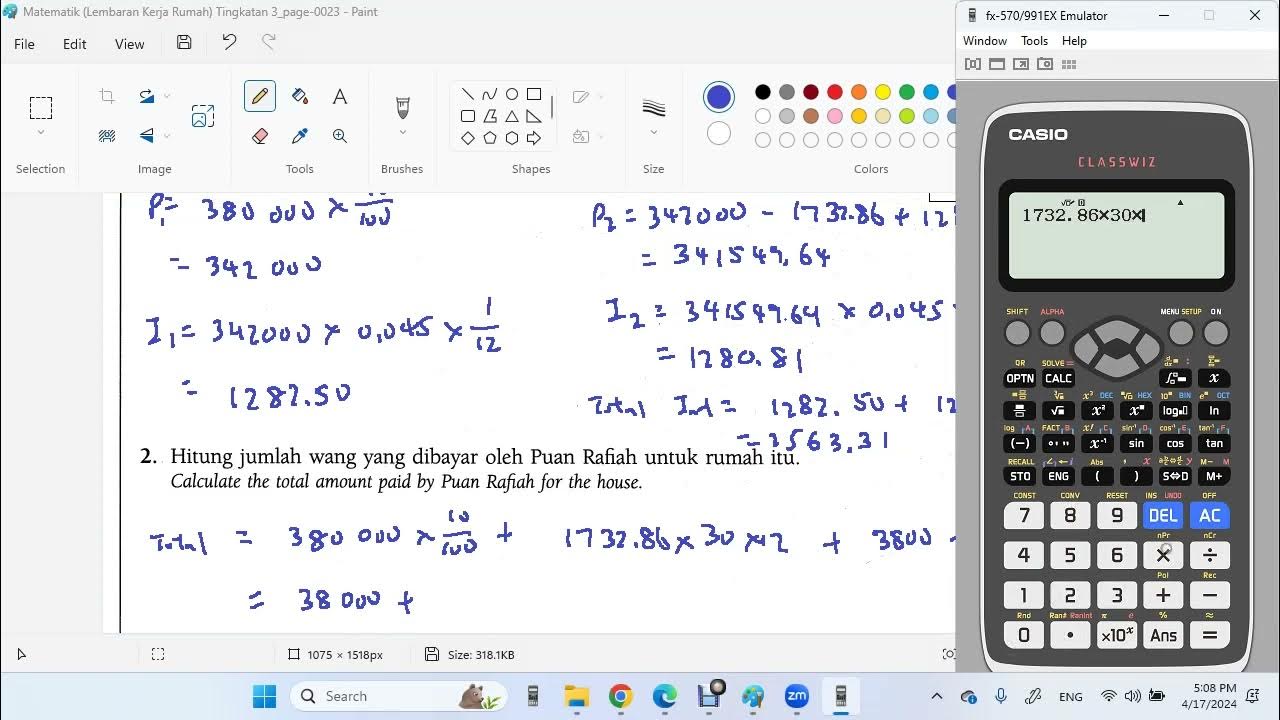 Matematik (Lembaran Kerja Rumah) Tingkatan 3_page-0023 - Paint
File Edit View
Selection Image Tools Brushes Shapes Size Colors
P₁ = 380 000 × 10/100
= 342 000
I₁ = 342000 × 0.045 × 1/12
= 1282.50
P₂ = 342000 - 1732.86 + 128
= 341549.64
I₂ = 341549.64 × 0.045
= 1280.81
Total Int = 1282.50 + 12
= 2563.31
2. Hitung jumlah wang yang dibayar oleh Puan Rafiah untuk rumah itu.
Calculate the total amount paid by Puan Rafiah for the house.
Total = 380 000 × 10/100 + 1732.86 × 30 × 12 + 3800
= 38 000 +
1075 × 1518px Size: 318.1KB
fx-570/991EX Emulator
Window Tools Help
CASIO
CLASSWIZ
1732.86×30×
SHIFT ALPHA MENU SETUP ON
QR SOLVE =
OPTN CALC x
DEC HEX BIN OCT
ln
log FACT
(-) sin cos tan
RECALL Abs M- M
STO ENG ( ) S⇔D M+
CONST CONV RESET INS UNDO OFF
7 8 9 DEL AC
nPr nCr
4 5 6 × ÷
Pol Rec
1 2 3 + -
Rnd Ran# RanInt π e % ≈
0 • ×10ˣ Ans =
Search
zm
ENG
5:08 PM
4/17/2024